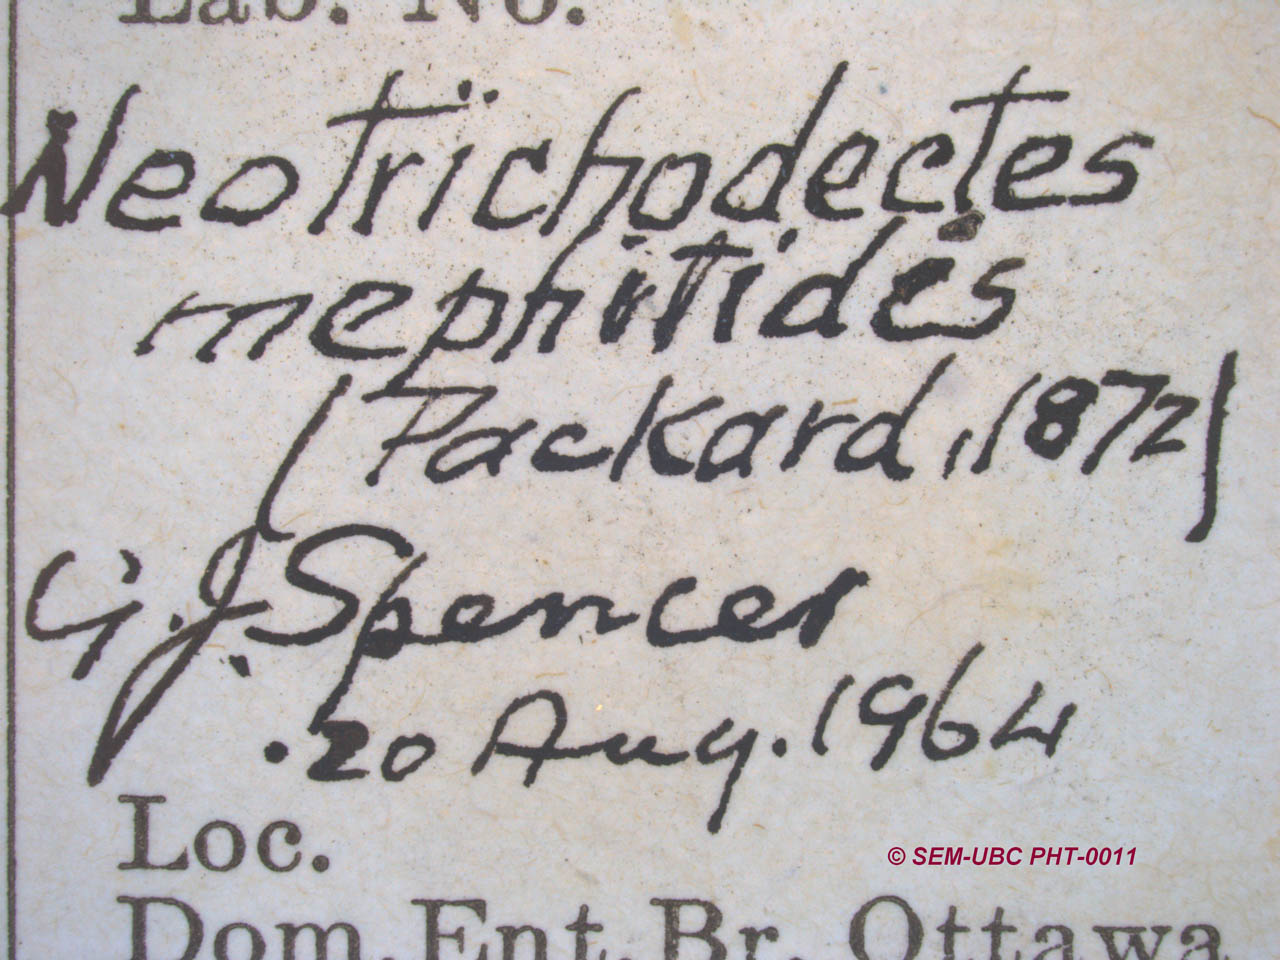 Lab. No.
Neotrichodectes
mephitidis
(Packard, 1872)
G.J. Spencer
. 20 Aug. 1964
Loc.
© SEM-UBC PHT-0011
Dom. Ent. Br. Ottawa